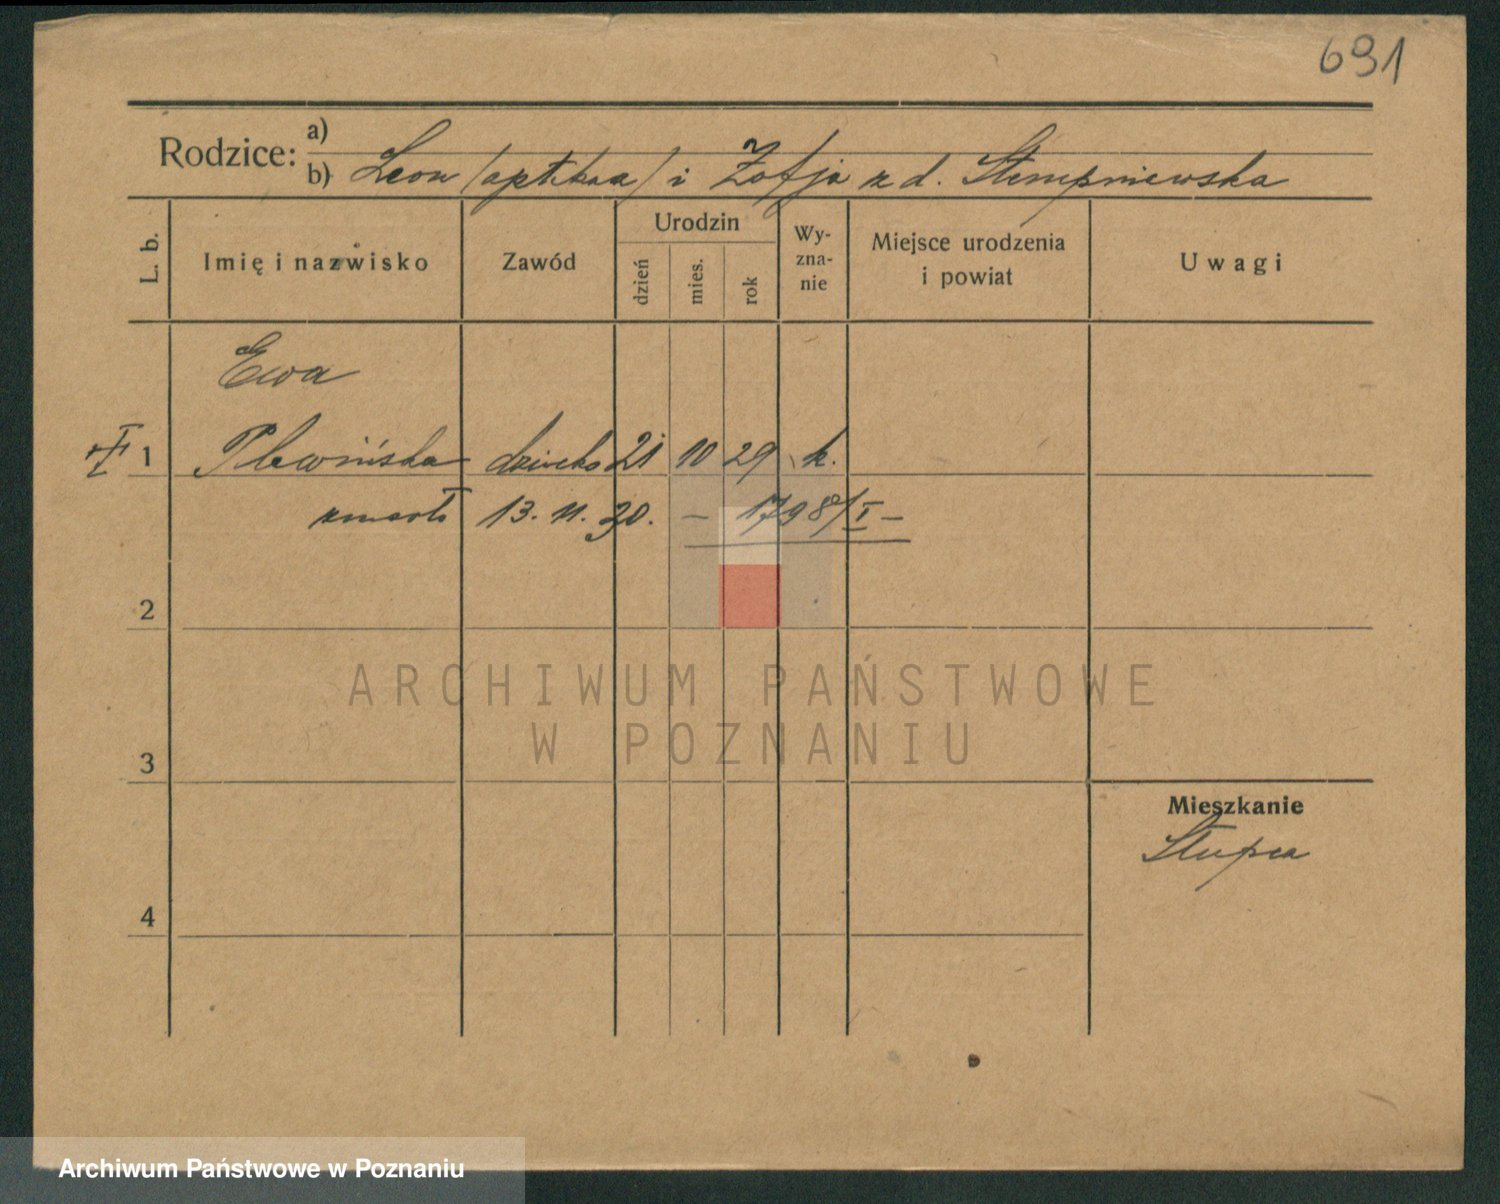 691
Rodzice: a)
b) Leon (aptekarz) i Zofja z d. Stempniewska
L. b.
Imię i nazwisko
Zawód
Urodzin
dzień
mies.
rok
Wy-
zna-
nie
Miejsce urodzenia
i powiat
Uwagi
Ewa
1 Plewińska dziecko 21 10 29 k.
zmarła 13. 11. 30. – 1798/I –
2
ARCHIWUM PAŃSTWOWE
W POZNANIU
3
Mieszkanie
Słupca
4
Archiwum Państwowe w Poznaniu